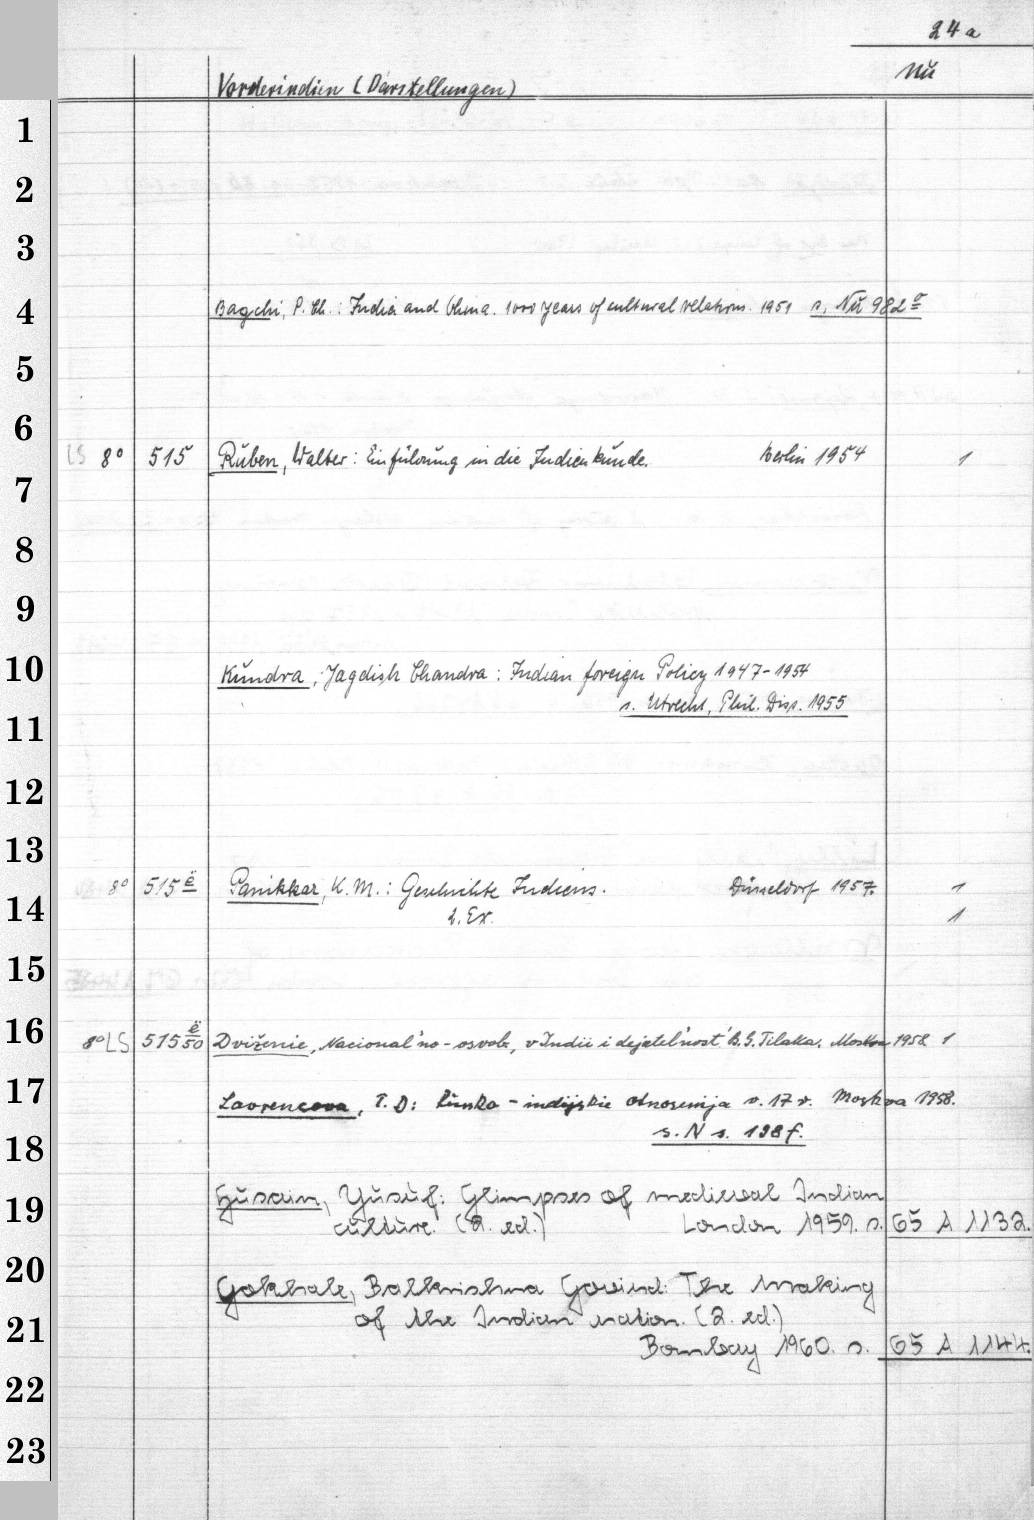 24a
Nu
Vorderindien (Darstellungen)
1
2
3
4 Bagchi, P. Ch.: India and China. 1000 years of cultural relations. 1951 s. Nu 982 a
5
6
LS 8° 515 Ruben, Walter: Einführung in die Indienkunde. Berlin 1954 1
7
8
9
10 Kundra, Jagdish Chandra: Indian foreign Policy 1947-1954
s. Utrecht, Phil. Diss. 1955
11
12
13
8° 515 ë Panikkar, K. M.: Geschichte Indiens. Düsseldorf 1957. 1
14 2. Ex. 1
15
16
8° LS 515 ë/50 Dviženie, Nacional'no-osvob, v Indii i dejatel'nost' B. G. Tilaka. Moskva 1958 1
17 Lavrencova, T. D: Russko-indijskie otnosenija v. 17 v. Moskva 1958.
s. N s. 198 f.
18
19 Husain, Yusuf: Glimpses of medieval Indian
culture. (2. ed.) London 1959. s. 65 A 1132.
20
Gokhale, Balkrishna Govind: The making
21 of the Indian nation. (2. ed.)
Bombay 1960. s. 65 A 1144.
22
23